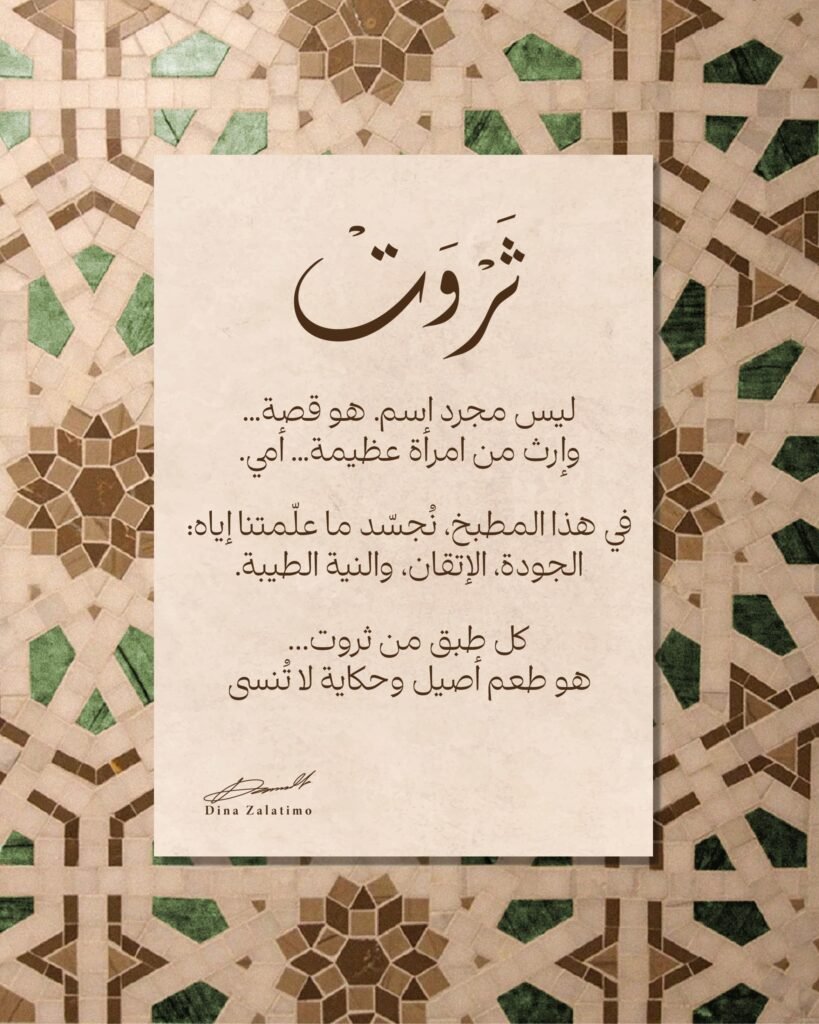 ثَرْوَتْ
ليس مجرد اسم. هو قصة...
وإرث من امرأة عظيمة... أمي.
في هذا المطبخ، نُجسّد ما علّمتنا إياه:
الجودة، الإتقان، والنية الطيبة.
كل طبق من ثروت...
هو طعم أصيل وحكاية لا تُنسى
Dina Zalatimo